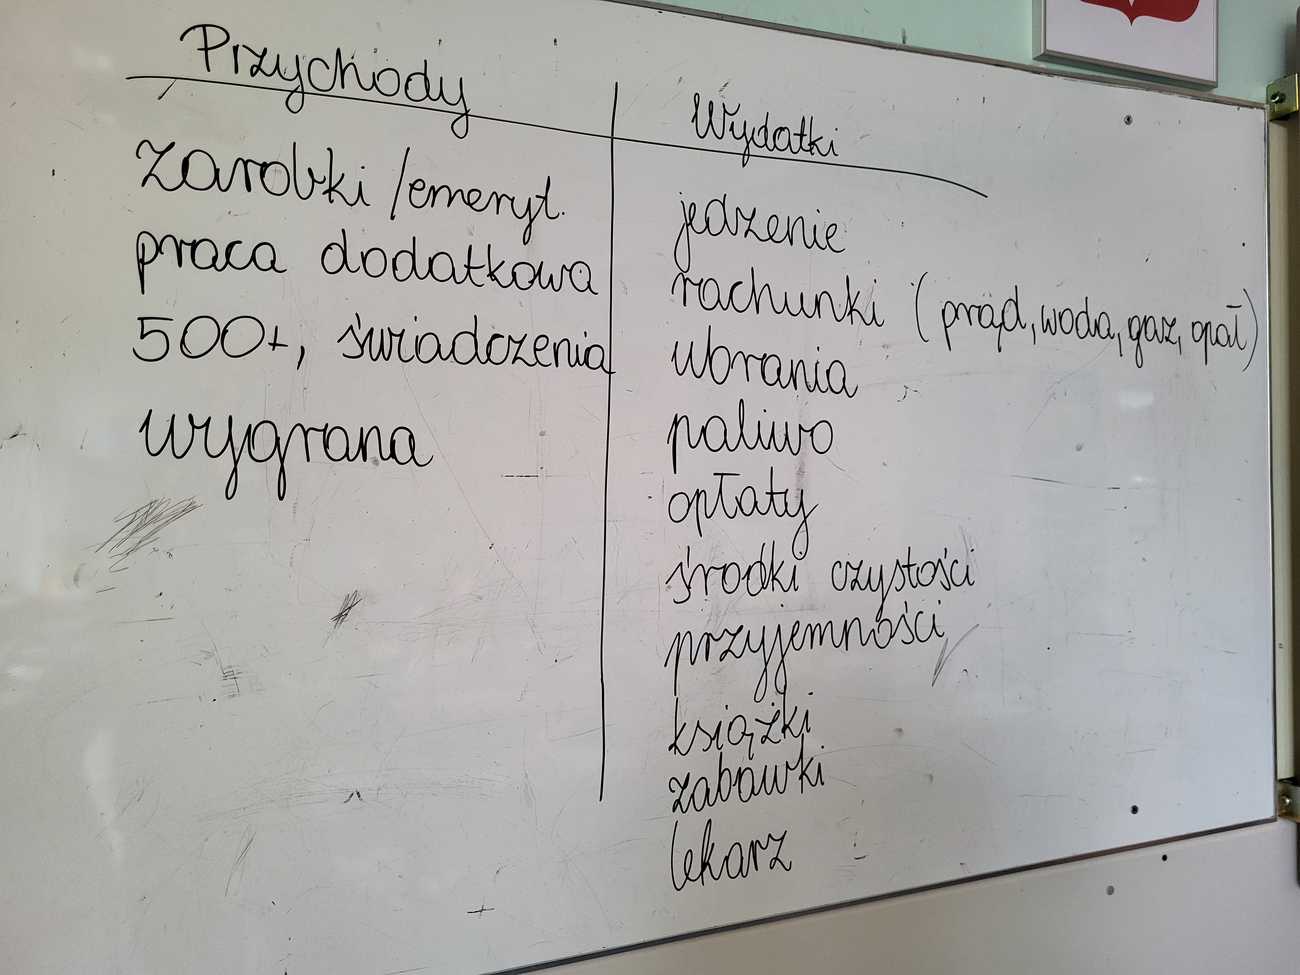 Przychody
zarobki /emeryt.
praca dodatkowa
500+, świadczenia
wygrana
Wydatki
jedzenie
rachunki (prąd, woda, gaz, opał)
ubrania
paliwo
opłaty
środki czystości
przyjemności
książki
zabawki
lekarz